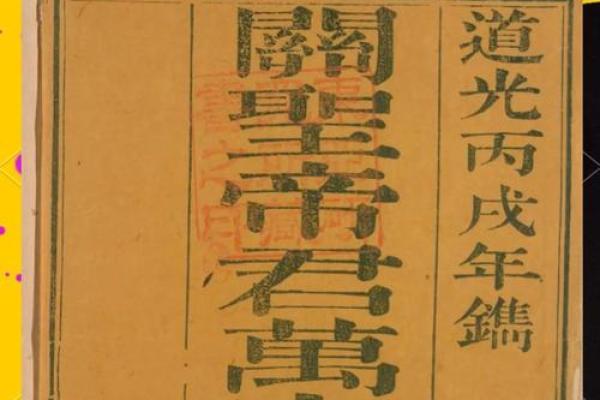 道光丙戌年鐫
關聖帝君萬